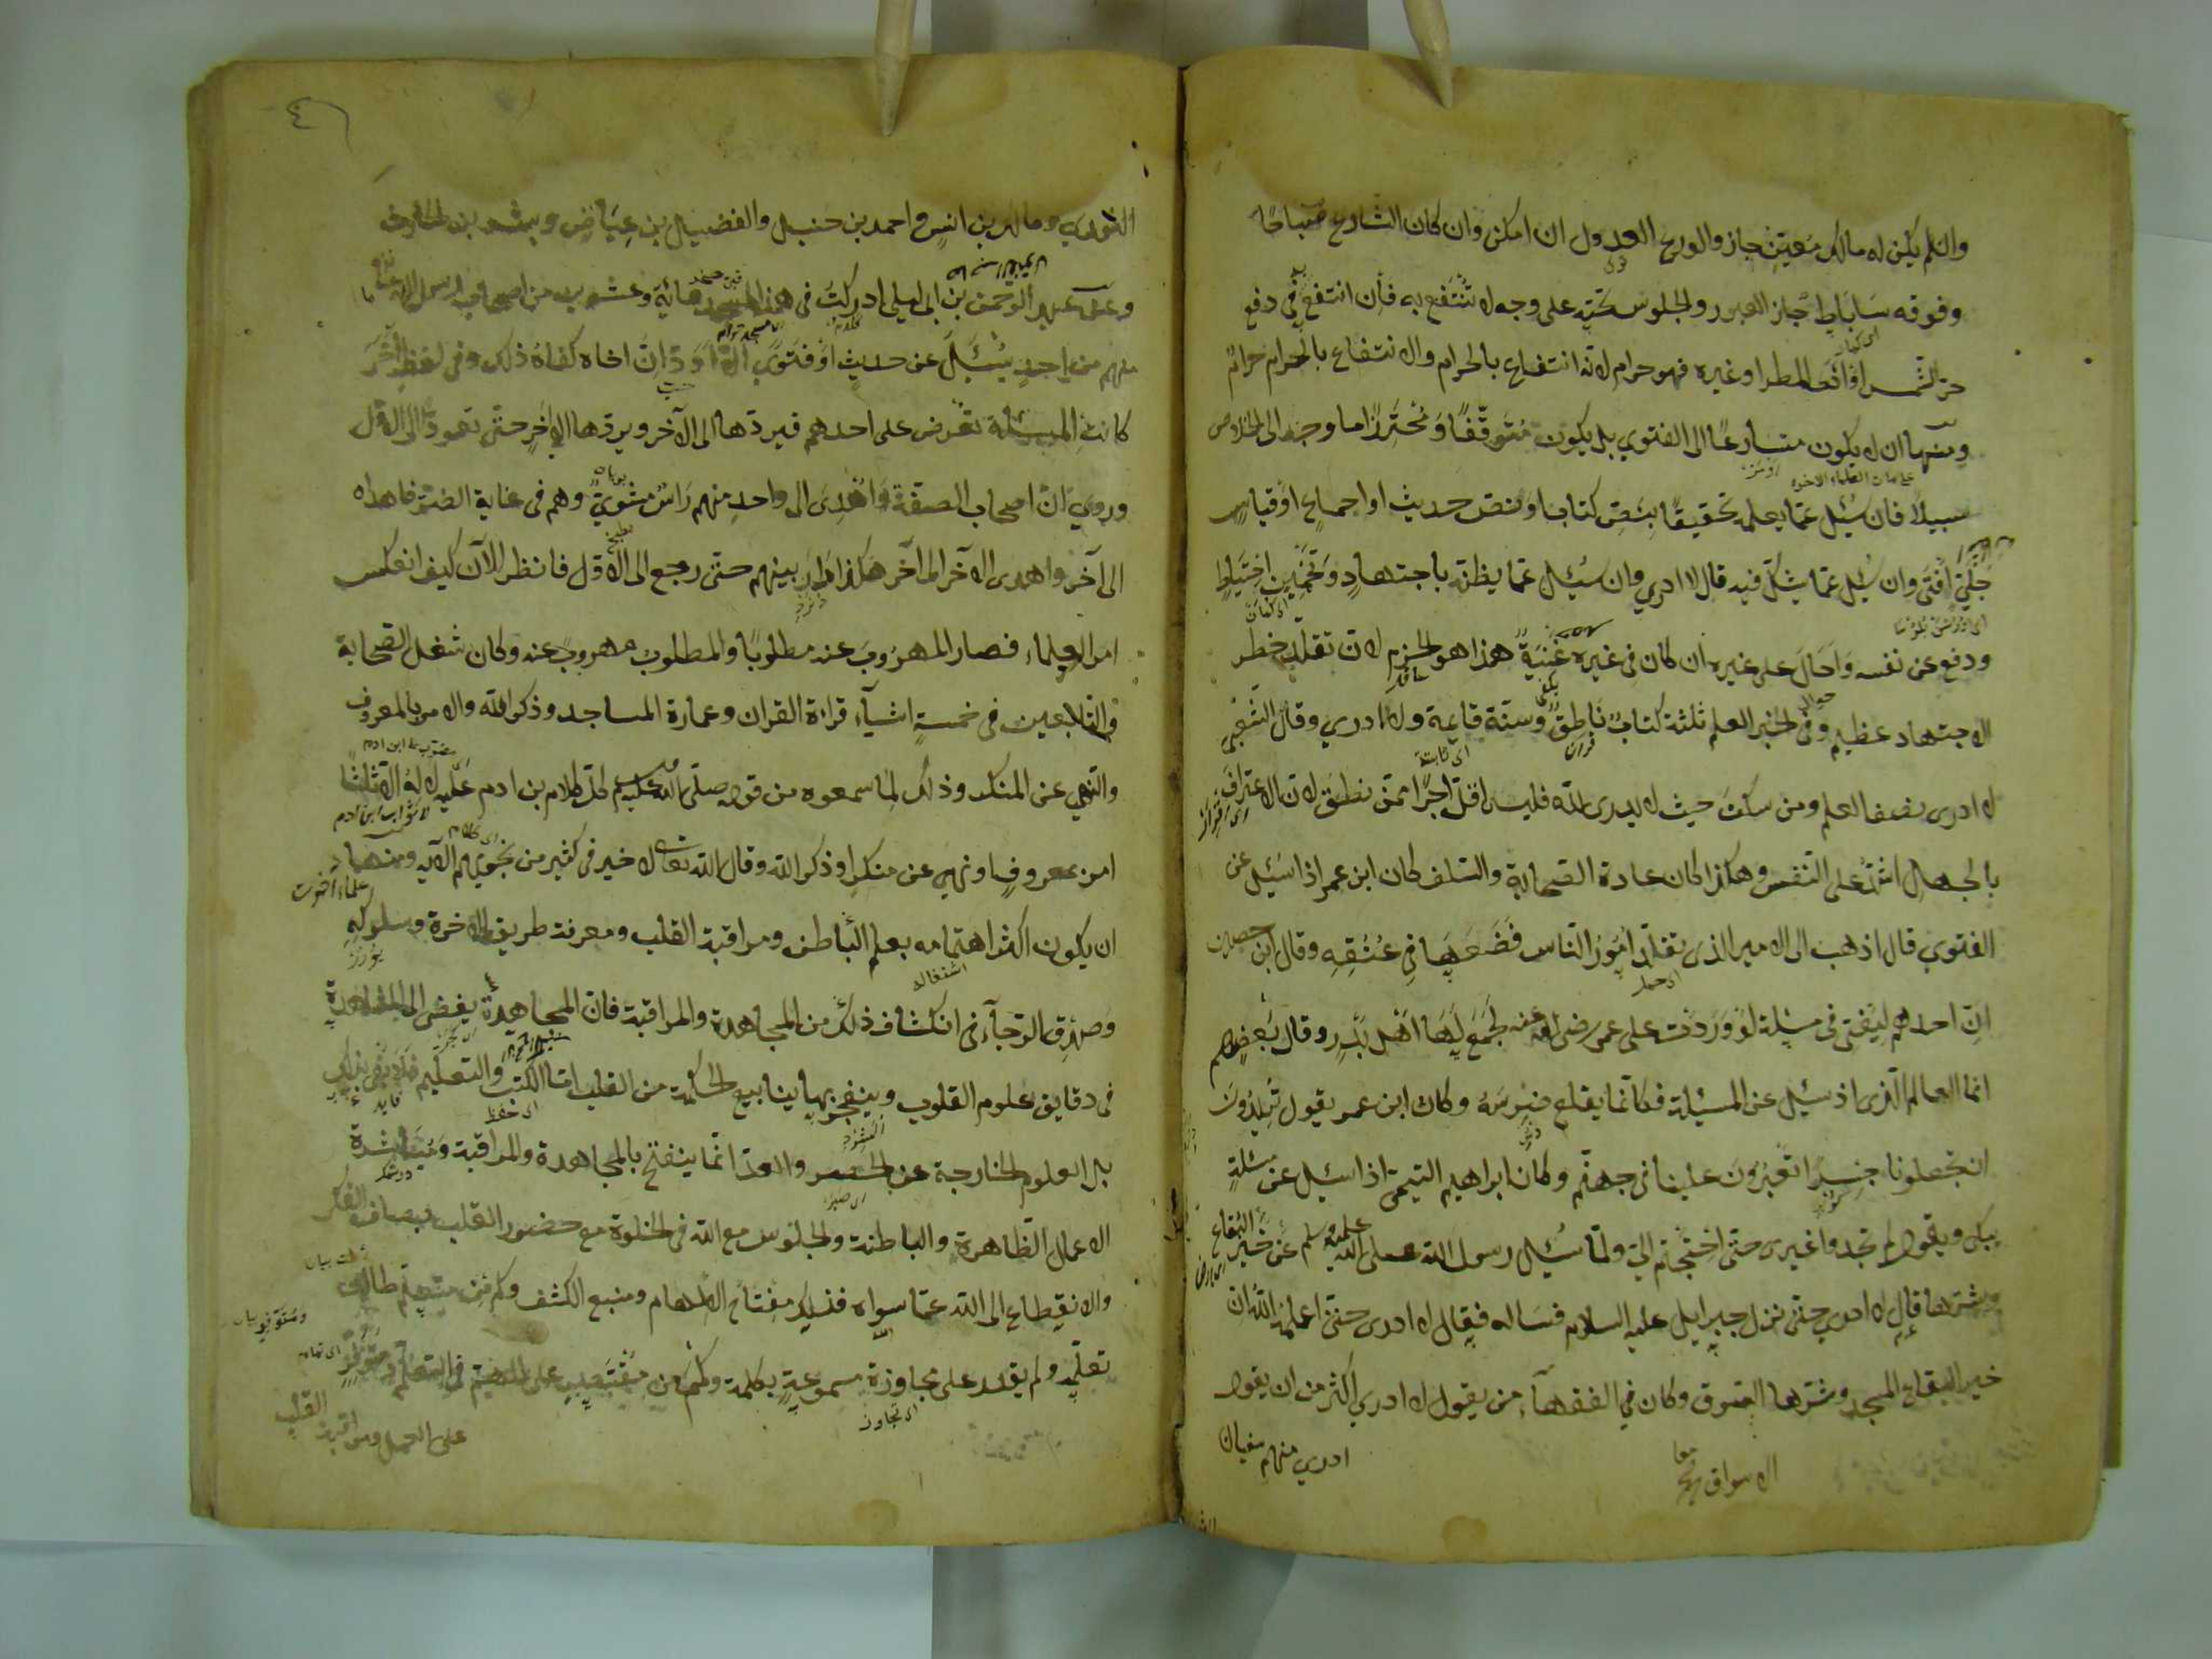 وان لم يكن له مالك معين جاز والورع العدول ان امكن وان كان الشارع مباحا
وفوقه ساباط جاز العبور والجلوس تحته على وجه لا تنتفع به فان انتفع به في دفع
حر الشمس او المطر او غيره فهو حرام لانه انتفاع بالحرام والانتفاع بالحرام حرام
ومنها ان لا يكون متسارعًا الى الفتوي بل يكون متوقّفًا ومُحترزًا ما وجد الى الخلاص
سبيلا فان سئل عمّا يعلمه تحقيقًا بنص كتاب او نص حديث او اجماع او قياس
جلي افتى وان سئل عمّا يشكّ فيه قال لا ادري وان سئل عمّا يظنّه باجتهاد وتخمين احتياط
ودفع عن نفسه واحال على غيره ان كان في غيره غنية هذا هو الحزم لان تقلّد خطر
الاجتهاد عظيم وفي الخبر العلم ثلثة كتاب ناطق وسنّة قايمة ولا ادري وقال الشعبي
لا ادرى نصف العلم ومن سكت حيث لا يدرى لله فليس اقل اجرًا ممّن نطق لان الاعتراف
بالجهل اشدّ على النفس وهكذا كان عادة الصحابة والسلف كان ابن عمر اذا سئل عن
الفتوي قال اذهب الى الامير الذى تقلّد امور الناس فضعها في عنقه وقال ابن حصين
انّ احدهم ليفتى فى مسئلة لو وردت على عمر رضى الله عنه لجمع لها اهل بدر وقال بعضهم
انما العالم الّذى اذ سئل عن المسئلة فكانّما يقلع ضرسه وكان ابن عمر يقول تريدون
ان تجعلونا جسرًا تعبرون علينا فى جهنم وكان ابراهيم التيمي اذا سئل عن مسئلة
يبكى ويقول لم تجدوا غيرى حتى احتجتم الىّ ولمّا سئل رسول الله صلى الله عليه وسلم عن خير البقاع
وشرها قال لا ادري حتى نزل جبرايل عليه السلام فساله فقال لا ادرى حتى اعلمه الله ان
خير البقاع المسجد وشرها السوق وكان في الفقهآء من يقول لا ادري اكثر من ان يقول
ادري منهم سفيان
الاسواق
الثوري ومالك بن انس واحمد بن حنبل والفضيل بن عياض وبشر بن الحارث
وعن عبد الرحمن بن ابى ليلى ادركت فى هذا المسجد مائة وعشرين من اصحاب رسول الله
منهم من احد يسئل عن حديث او فتوى الّا ودّ ان اخاه كفاه ذلك وفى لفظ آخر
كانت المسئلة تعرض على احدهم فيردها الى الآخر ويردها الى الآخر حتّى تعود الى الاول
وروي ان اصحاب الصفة اهدى الى واحد منهم راس مشويّ وهم فى غاية الضرّ فاهداه
الى آخر واهدى الآخر الى آخر هكذا دار بينهم حتّى رجع الى الاول فانظر الآن كيف انعكس
امر العلماء فصار المهروب عنه مطلوبًا والمطلوب مهروب عنه وكان شغل الصحابة
والتابعين فى خمسة اشيآء قراءة القران وعمارة المساجد وذكر الله والامر بالمعروف
والنهي عن المنكر وذلك لما سمعوه من قوله صلى الله عليه وسلم كل كلام بن ادم عليه لا له الا ثلثا
امر بمعروف او نهي عن منكر او ذكر الله وقال الله تعالى لا خير فى كثير من نجويهم الآية ومنها
ان يكون اكثر اهتمامه بعلم الباطن ومراقبة القلب ومعرفة طريق الاخرة وسلوكه
وصدق الرجآء فى انكشاف ذلك من المجاهدة والمراقبة فان المجاهدة يفضى الى المشاهدة
فى دقايق علوم القلوب وينفجر بها ينابيع الحكمة من القلب امّا الكتب والتعليم فلا يفى بذلك
بل العلوم الخارجة عن الحصر والعدّ انّما ينفتح بالمجاهدة والمراقبة ومباشرة
الاعمال الظاهرة والباطنة والجلوس مع الله فى الخلوة مع حضور القلب بصاف الفكر
والانقطاع الى الله عمّا سواه فذلك مفتاح الالهام ومنبع الكشف وكم من متعلّم طال
تعلّمه ولم يقدر على مجاوزة مسموعه بكلمة وكم من مقتصد على المهم فى التعلّم ومتوفر
على العمل ومراقبة القلب